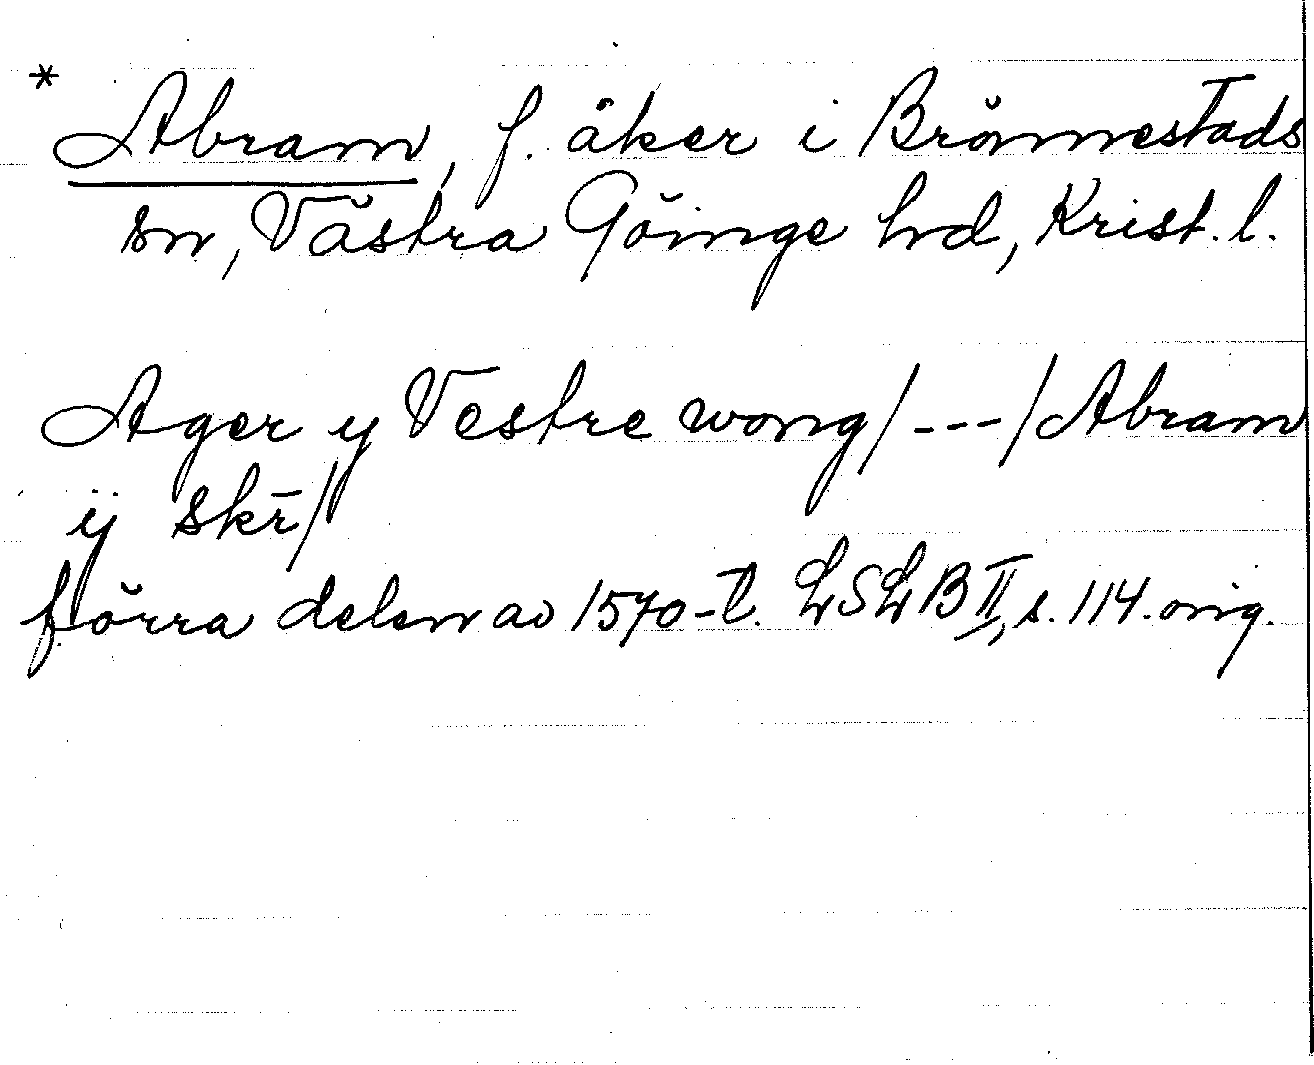 * Abram, f. åker i Brönnestads
sn, Västra Göinge hd, Krist. l.
Ager y Vestre wong/---/Abram
ÿ skr̄/
förra delen av 1570-t. LSLB II, s. 114. orig.